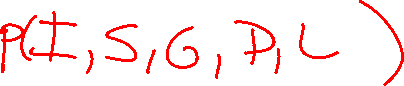 P(I, S, G, D, L)